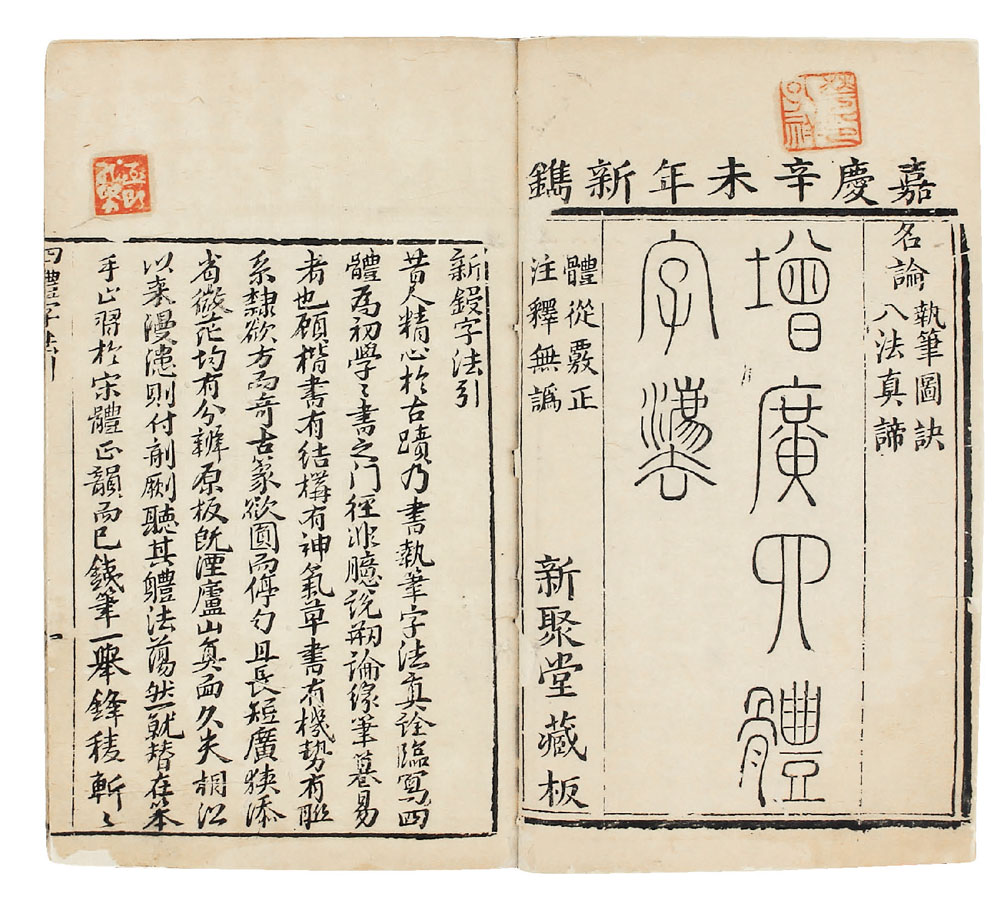 嘉慶辛未年新鐫
名論
執筆圖訣
八法真諦
增廣四體
字法
體從覈正
注釋無譌
新聚堂藏板
新鋟字法引
昔人精心於古蹟乃書執筆字法真詮臨寫四
體為初學之書之门徑非臆说剏論緣筆墓易
者也顾楷書有结構有神氣草書有機勢有
系隸欲方而奇古篆欲圓而停勻且長短廣狹添
省微茫均有分辨原板既湮廬山真面久失相沿
以來漫漶則付剞劂聽其體法蕩然就替在
手止習於宋體正韻而已鐵筆一舉鋒稜斬〻
四體字法引
一